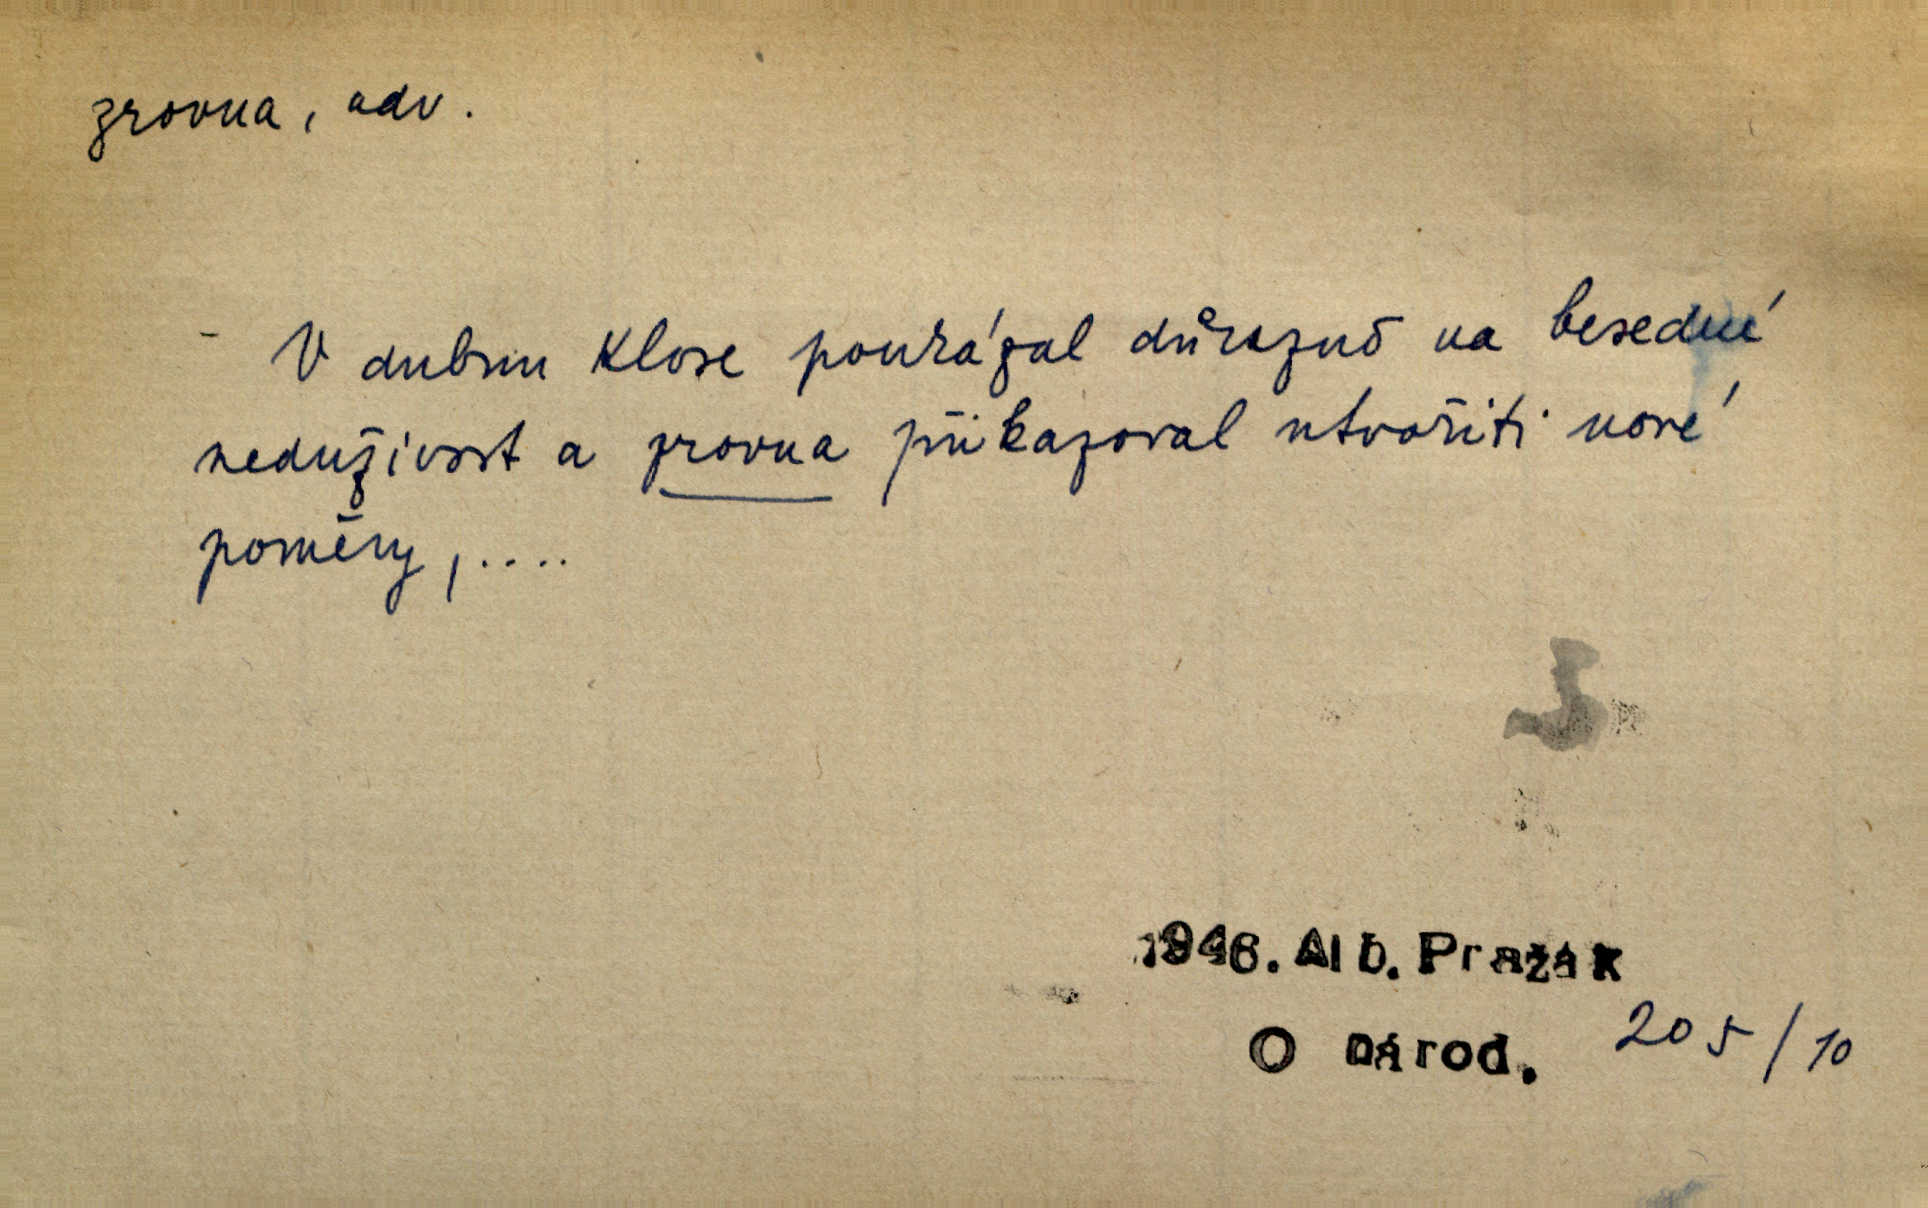 zrovna, adv.
- V dubnu Klose poukázal důrazně na besední
neduživost a zrovna přikazoval utvořiti nové
poměry,....
1946. Alb. Pražák
O národ. 205/10